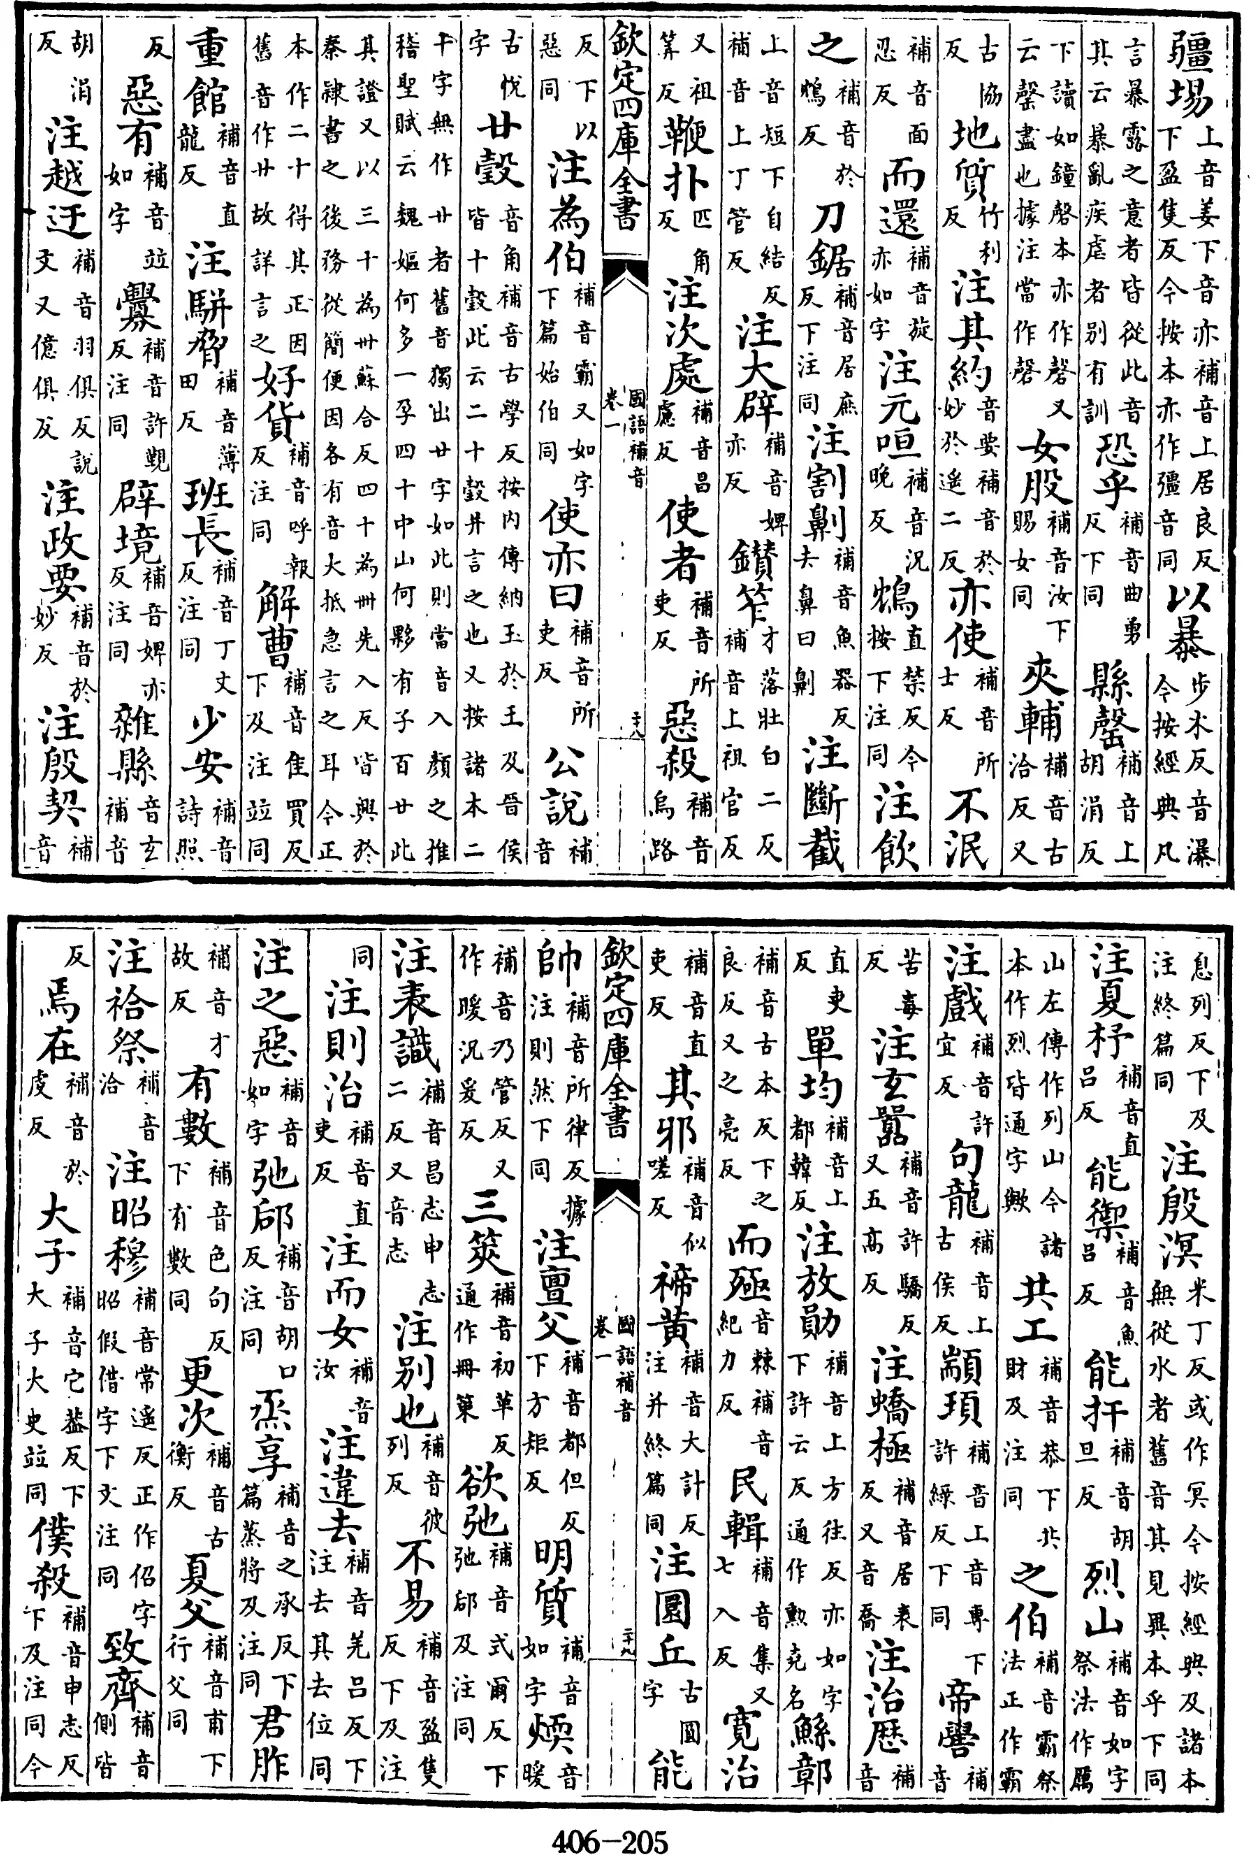 疆埸上音姜下音亦補音上居良反下盈隻反今按本亦作彊音同以暴步木反音瀑今按經典凡
言暴露之意者皆從此音其云暴亂疾虐者別有訓恐乎補音曲勇反下同縣罄補音上胡涓反
下讀如鐘磬本亦作磬又云罄盡也據注當作磬女股補音汝下賜女同夾輔補音古洽反又
古協反地質竹利反注其約音要補音於妙於遙二反亦使補音所士反不泯
補音面忍反而還補音旋亦如字注元咺補音況晚反鴆直禁反今按下注同注飲
之補音於鴆反刀鋸補音居庶反下注同注割劓補音魚器反去鼻曰劓注斷截
上音短下自結反補音上丁管反注大辟補音婢亦反鑽笮才落壯白二反補音上祖官反
又祖筭反鞭扑匹角反注次處補音昌慮反使者補音所吏反惡殺補音烏路
欽定四庫全書 國語補音 卷一 二十八
反下以惡同注為伯補音霸又如字下篇始伯同使亦曰補音所吏反公說補音
古悅字廿瑴音角補音古學反按內傳納玉於王及晉侯皆十瑴此云二十瑴并言之也又按諸本二
十字無作廿者舊音獨出廿字如此則當音入顏之推稽聖賦云魏嫗何多一孕四十中山何夥有子百廿此
其證又以三十為卅蘇合反四十為卌先入反皆興於秦隸書之後務從簡便因各有音大抵急言之耳今正
本作二十得其正因舊音作廿故詳言之好貨補音呼報反注同解曹補音隹買反下及注竝同
重館補音直龍反注駢脅補音薄田反班長補音丁丈反注同少安補音詩照
反惡有補音竝如字釁補音許覲反注同辟境補音婢亦反注同雜縣音玄補音
胡涓反注越迂補音羽俱反說文又億俱反注政要補音於妙反注殷契補音
息列反下及注終篇同注殷溟米丁反或作冥今按經典及諸本無從水者舊音其見異本乎下同
注夏杼補音直呂反能禦補音魚呂反能扞補音胡旦反烈山補音如字祭法作厲
山左傳作列山今諸本作烈皆通字歟共工補音恭下共財及注同之伯補音霸祭法正作霸
注戲補音許宜反句龍補音上古侯反顓頊補音上音專下許緑反下同帝嚳補音
苦毒反注玄囂補音許驕反又五高反注蟜極補音居表反又音喬注治歷補音
直吏反單均補音上都韓反注放勛補音上方往反亦如字下許云反通作勲堯名鯀鄣
補音古本反下之良反又之亮反而殛音棘補音紀力反民輯補音集又七入反寬治
補音直吏反其邪補音似嗟反禘黃補音大計反注并終篇同注圜丘古圓字能
欽定四庫全書 國語補音 卷一 二十九
帥補音所律反據注則然下同注亶父補音都但反下方矩反明質補音如字煗音暖
補音乃管反又作暖況爰反三筴補音初革反通作冊䇿欲弛補音式爾反下弛郈及注同
注表識補音昌志申志二反又音志注別也補音彼列反不易補音盈隻反下及注
同注則治補音直吏反注而女補音汝注違去補音羌呂反下注去其去位同
注之惡補音如字弛郈補音胡口反注同烝享補音之承反下篇蒸將及注同君胙
補音才故反有數補音色句反下有數同更次補音古衡反夏父補音甫下行父同
注祫祭補音洽注昭穆補音常遙反正作佋字昭假借字下文注同致齊補音側皆
反焉在補音於虔反大子補音它葢反下大子大史竝同僕殺補音申志反下及注同今
406-205